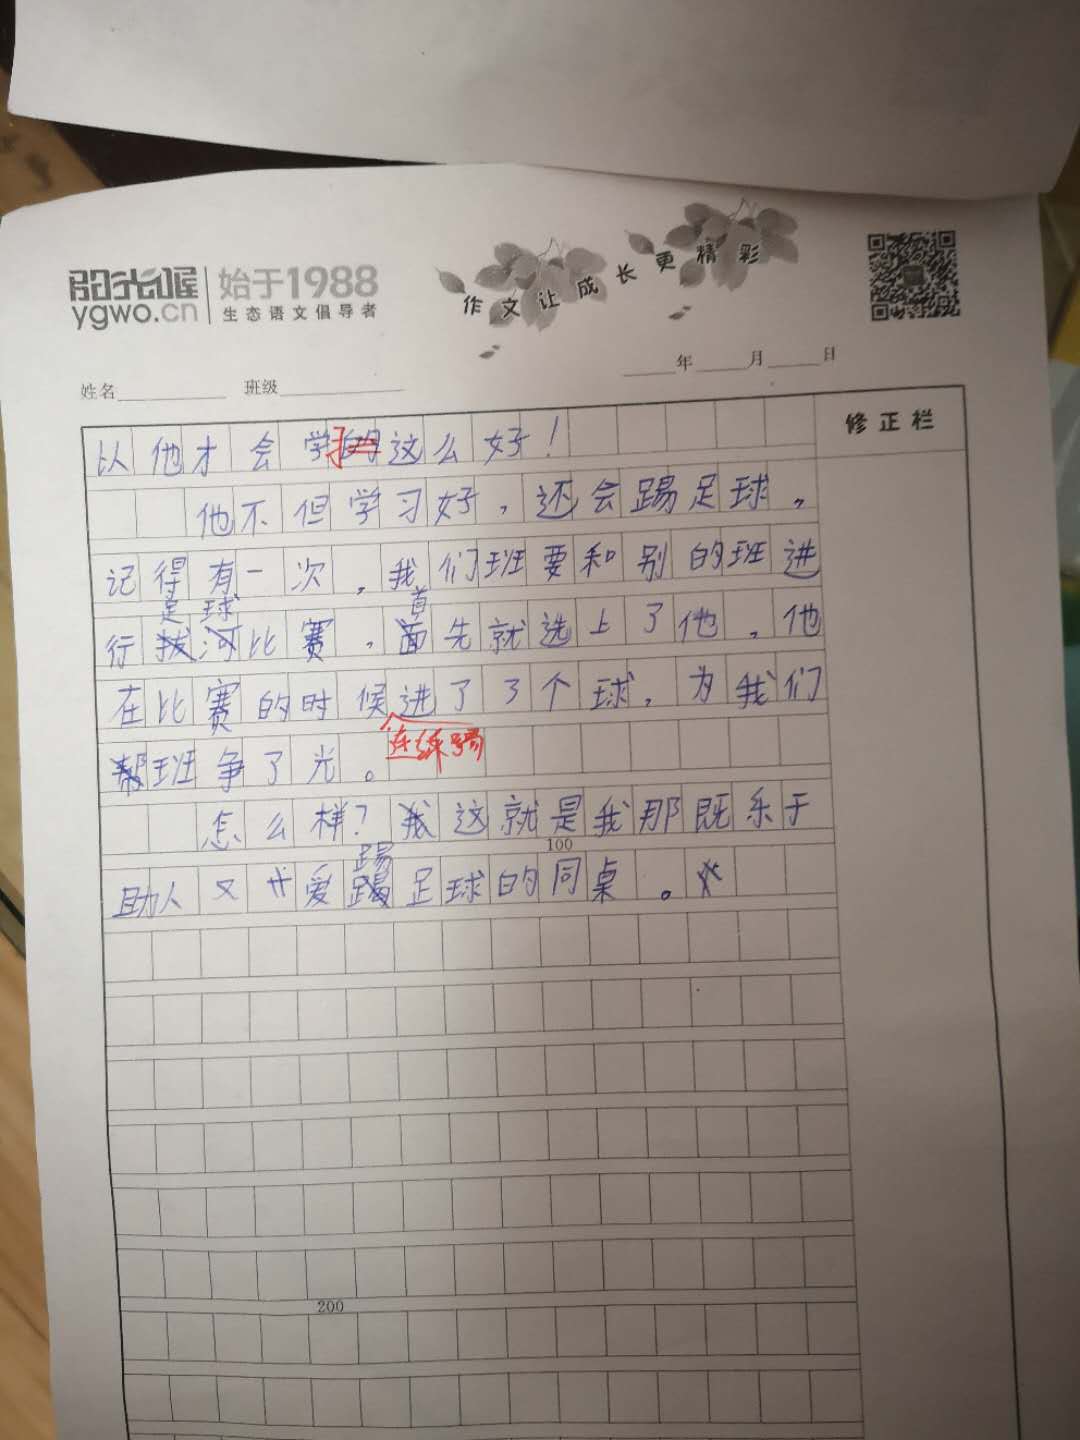 阳光喔 始于1988
ygwo.cn 生态语文倡导者
作文让成长更精彩
年 月 日
姓名 班级
修正栏
以他才会学习这么好！
他不但学习好，还会踢足球，
记得有一次，我们班要和别的班进
足球 首
行拔河比赛，面先就选上了他，他
在比赛的时候进了了个球，为我们
连续踢
帮班争了光。
怎么样？我这就是我那既乐于
100
踢
助人又爱踢足球的同桌。
200